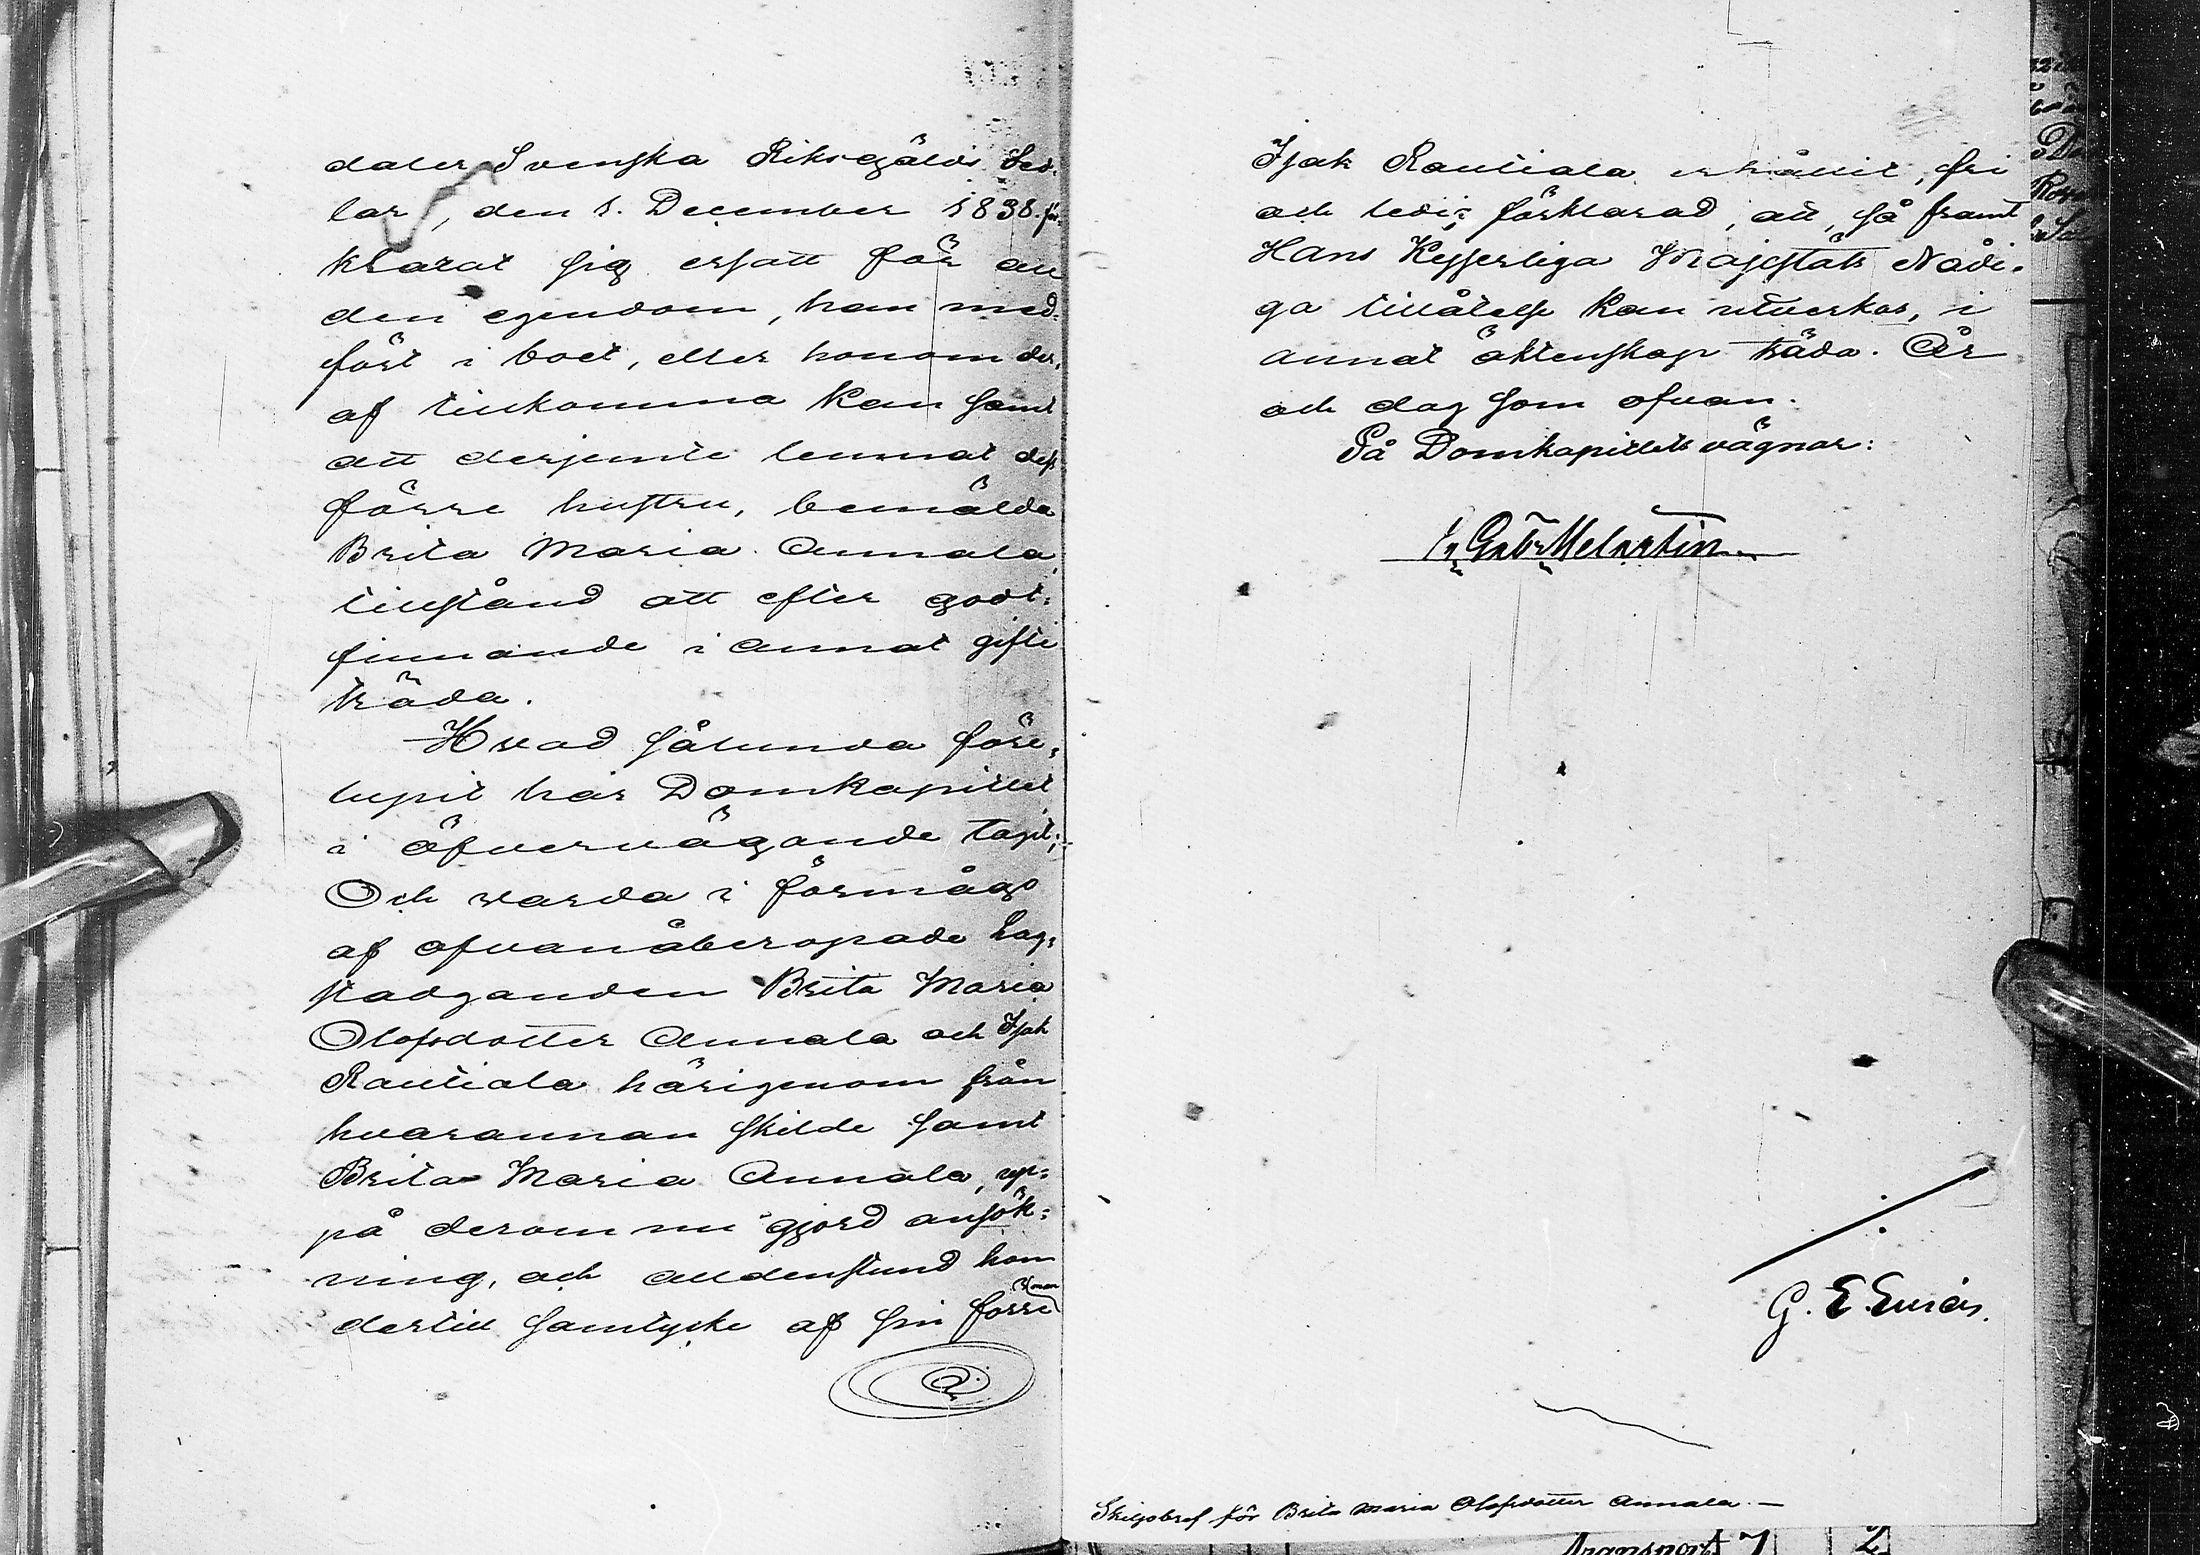 daler Svenska Riksgälds Sed-
lar, den 1. December 1838. för-
klarat sig ersatt för all
den egendom, han med-
fört i boet, eller honom der-
af tillkomma kan samt
att derjemte lemnat dess
förre hustru, bemälda
Brita Maria Annala,
tillstånd att efter godt-
finnande i annat gifte
träda.
Hvad sålunda före-
lupit har Domkapitlet
i öfvervägande tagit;
Och varda i förmågo
af ofvanåberopade Lag-
stadganden Brita Maria
Olofsdotter Annala och Isak
Rautiala härigenom från
hvarannan skilde samt
Brita Maria Annala, up-
på derom nu gjord ansök-
ning, och alldenstund hon
dertill samtycke af sin förre man
Isak Rautiala erhållit, fri
och ledig förklarad, att, så framt
Hans Kejserliga Majestäts Nådi-
ga tillåtelse kan utverkas, i
annat äktenskap träda. År
och dag som ofvan.
På Domkapitlets vägnar:
Er Gabr Melartin
G. E. Eurén.
Skiljobref för Brita Maria Olofsdotter Annala.—
Transport 7 2